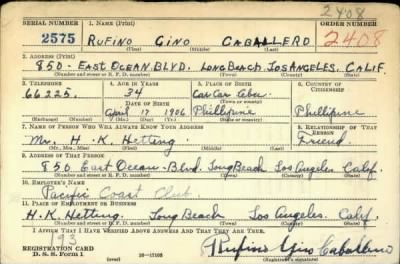 2408
SERIAL NUMBER 1. NAME (Print) ORDER NUMBER
2575 RUFINO GINO CABALLERO 2408
(First) (Middle) (Last)
2. ADDRESS (Print)
850 - EAST OCEAN. BLVD. LONG BEACH, LOS ANGELES, CALIF.
(Number and street or R. F. D. number) (Town) (County) (State)
3. TELEPHONE 4. AGE IN YEARS 5. PLACE OF BIRTH 6. COUNTRY OF CITIZENSHIP
66225. 34 Car Car Cebu
DATE OF BIRTH (Town or county)
April 17 1906 Phillipine Phillipine
(Exchange) (Number) (Mo.) (Day) (Yr.) (State or country)
7. NAME OF PERSON WHO WILL ALWAYS KNOW YOUR ADDRESS 8. RELATIONSHIP OF THAT PERSON
Mr. H. K. Hetting Friend
(Mr., Mrs., Miss) (First) (Middle) (Last)
9. ADDRESS OF THAT PERSON
850 East Ocean Blvd. Long Beach Los Angeles Calif.
(Number and street or R. F. D. number) (Town) (County) (State)
10. EMPLOYER'S NAME
Pacific Coast Club
11. PLACE OF EMPLOYMENT OR BUSINESS
H. K. Hetting. Long Beach Los Angeles Calif.
(Number and street or R. F. D. number) (Town) (County) (State)
I AFFIRM THAT I HAVE VERIFIED ABOVE ANSWERS AND THAT THEY ARE TRUE.
REGISTRATION CARD
D. S. S. Form 1 16-17105
Rufino Gino Caballero